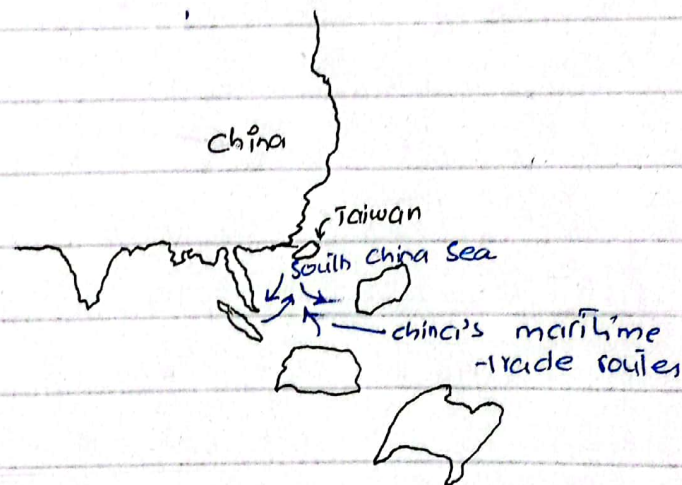 China
Taiwan
South China Sea
China's maritime
trade routes